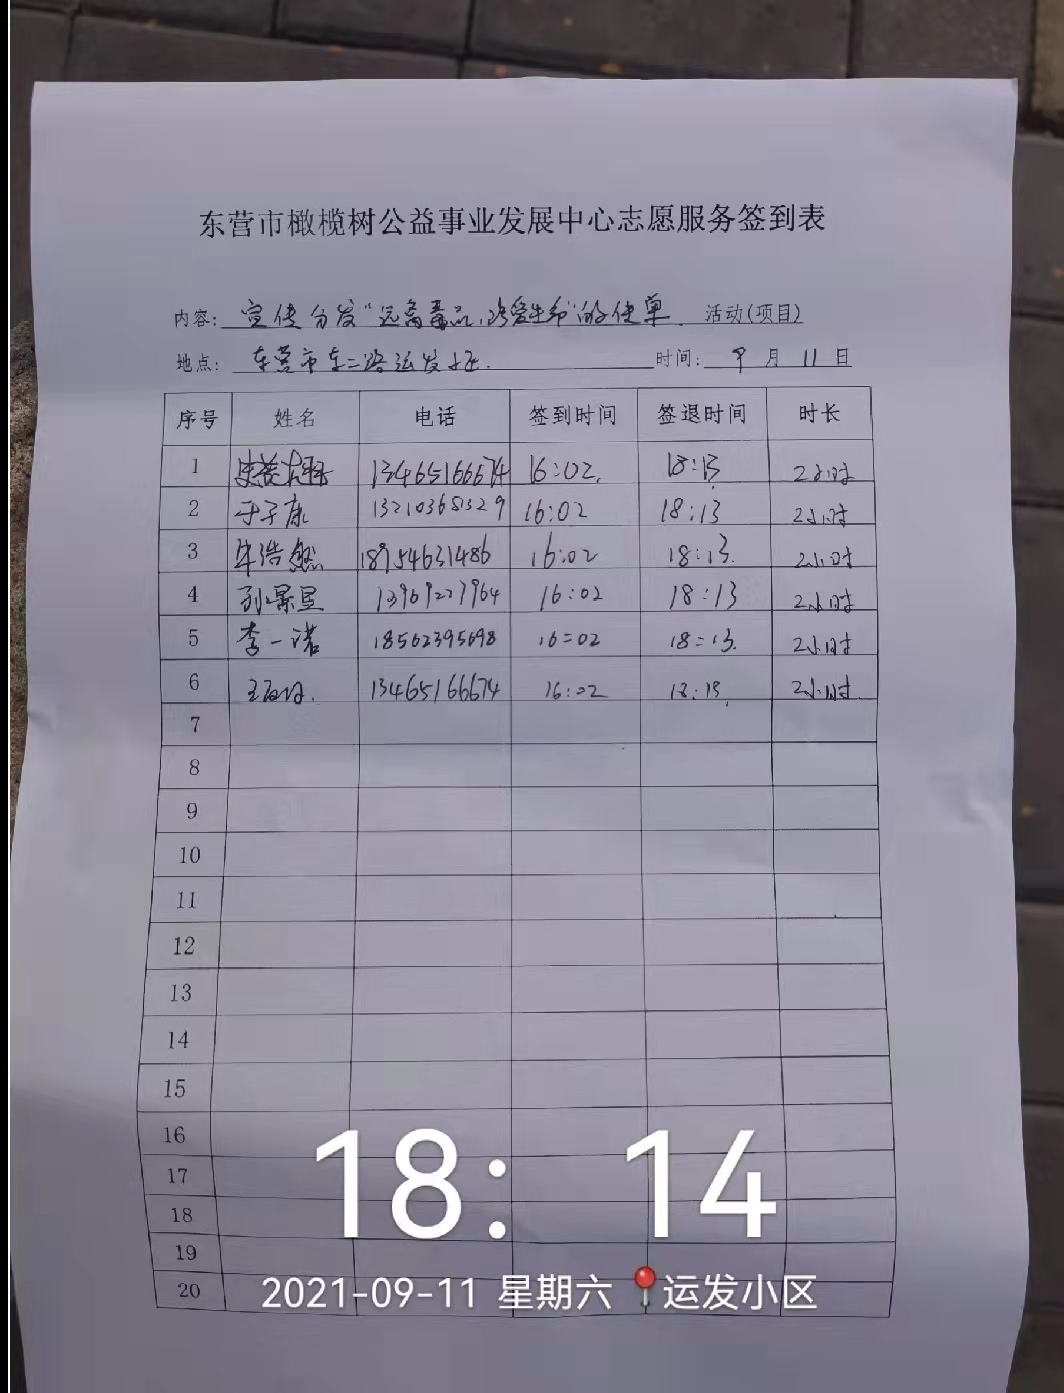 东营市橄榄树公益事业发展中心志愿服务签到表
内容: 宣传分发“远离毒品,珍爱生命”的传单. 活动(项目)
地点: 东营市东二路运发小区. 时间: 9 月 11 日
序号 姓名 电话 签到时间 签退时间 时长
1 13465166674 16:02. 18:13 2小时
2 于子康 13210368329 16:02 18:13 2小时
3 牟浩然 18954631486 16:02 18:13. 2小时
4 孙景昱 13969227964 16:02 18:13 2小时
5 李一诺 18562395698 16:02 18:13. 2小时
6 13465166674 16:02 18:13 2小时.
7
8
9
10
11
12
13
14
15
16
17
18
19
20
18: 14
2021-09-11 星期六 📍运发小区